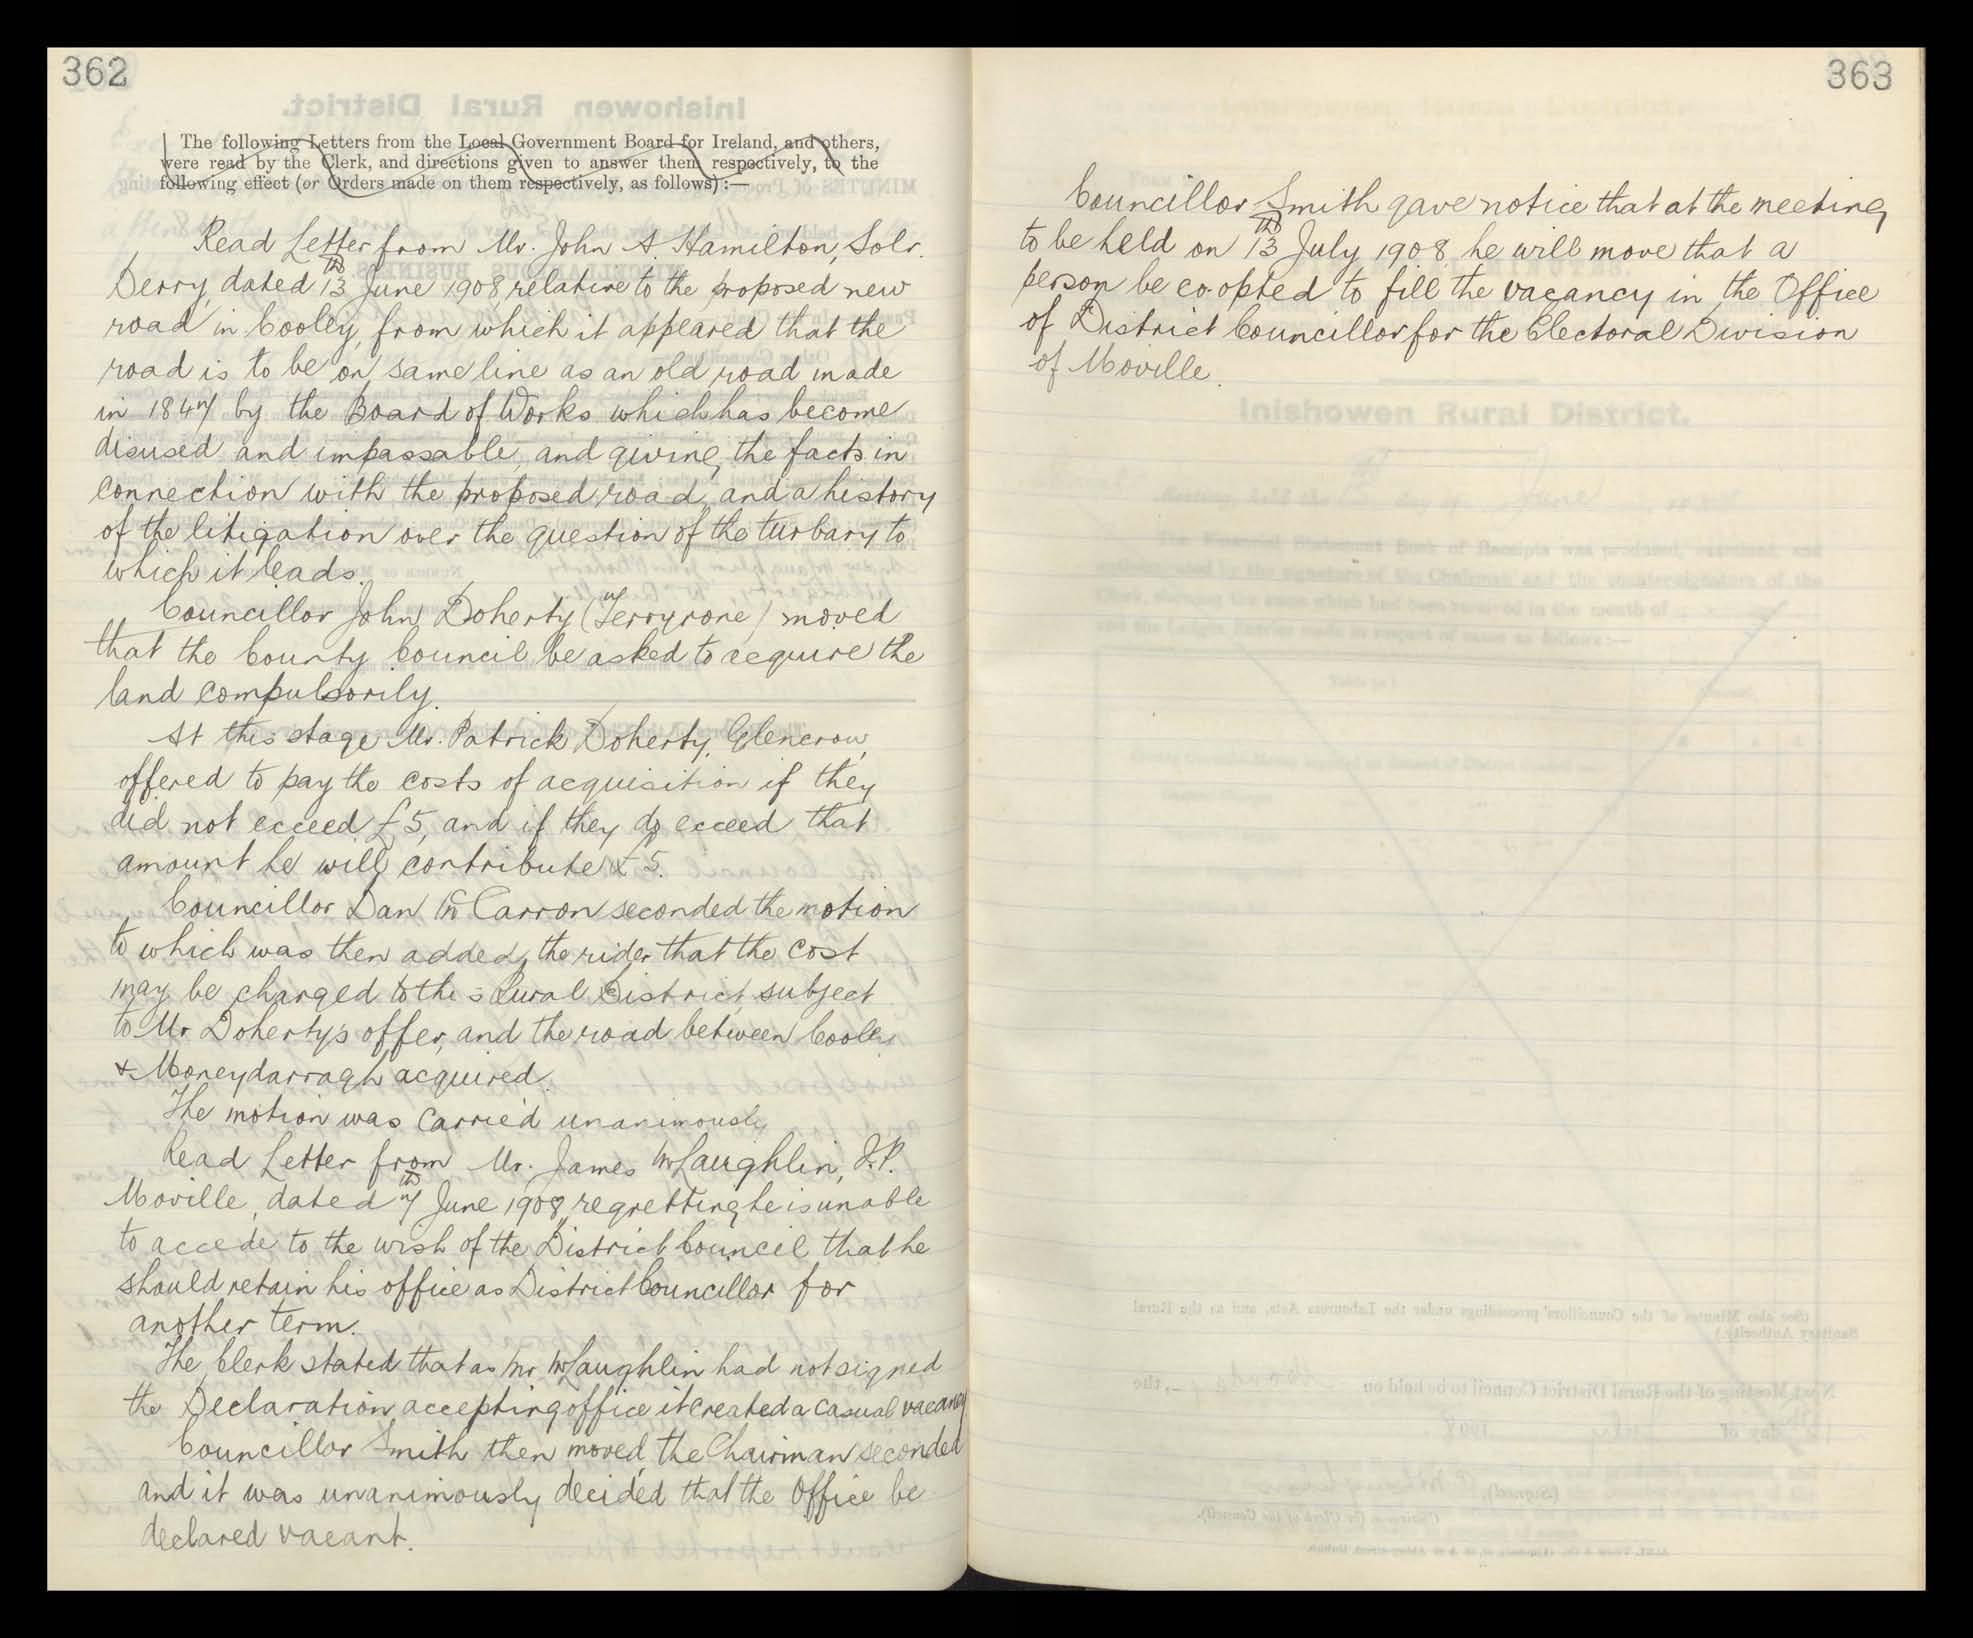 362
The following Letters from the Local Government Board for Ireland, and others,
were read by the Clerk, and directions given to answer them respectively, to the
following effect (or Orders made on them respectively, as follows) :—
Read Letter from Mr. John A. Hamilton, Solr.
Derry, dated 13th June 1908 relative to the proposed new
road in Cooley, from which it appeared that the
road is to be on same line as an old road made
in 1847 by the Board of Works which has become
disused and impassable, and giving the facts in
connection with the proposed road, and a history
of the litigation over the question of the turbary to
which it leads.
Councillor John Doherty (Terryrone) moved
that the County Council be asked to acquire the
land compulsorily.
At this stage Mr. Patrick Doherty, Glencrow,
offered to pay the costs of acquisition if they
did not exceed £5, and if they do exceed that
amount he will contribute £5.
Councillor Dan McCarron seconded the motion
to which was then added, the rider that the cost
may be charged to this Rural District, subject
to Mr Doherty's offer, and the road between Cooley
& Moneydarragh acquired.
The motion was carried unanimously
Read Letter from Mr. James McLaughlin, J.P.
Moville, dated 7th June 1908, regretting he is unable
to accede to the wish of the District Council that he
should retain his office as District Councillor for
another term.
The Clerk stated that as Mr McLaughlin had not signed
the Declaration accepting office it created a casual vacancy
Councillor Smith then moved, the Chairman seconded
and it was unanimously decided that the Office be
declared vacant.
363
Councillor Smith gave notice that at the meeting
to be held on 13th July 1908 he will move that a
person be co-opted to fill the vacancy in the Office
of District Councillor for the Electoral Division
of Moville.